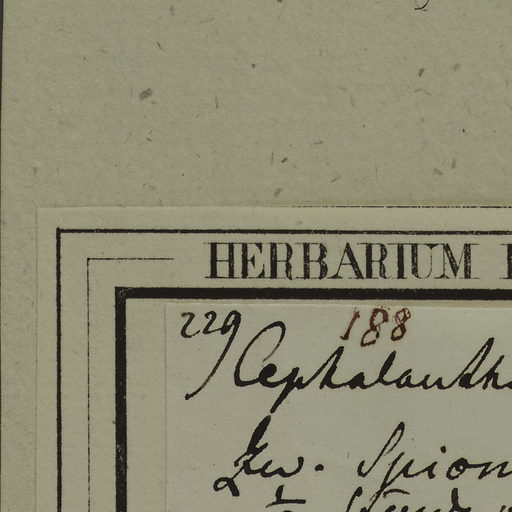 HERBARIUM
229) 188
Cephalanth
Zw. Spion